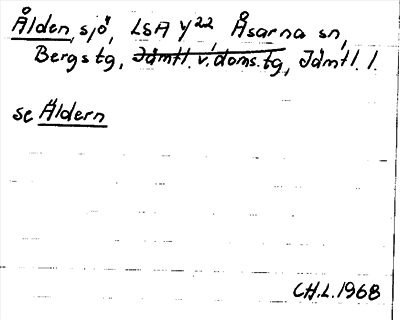 Ålden, sjö, LSA Y22, Åsarna sn,
Bergs tg, Jämtl. v. doms. tg, Jämtl. l.
se Äldern
CH.L. 1968